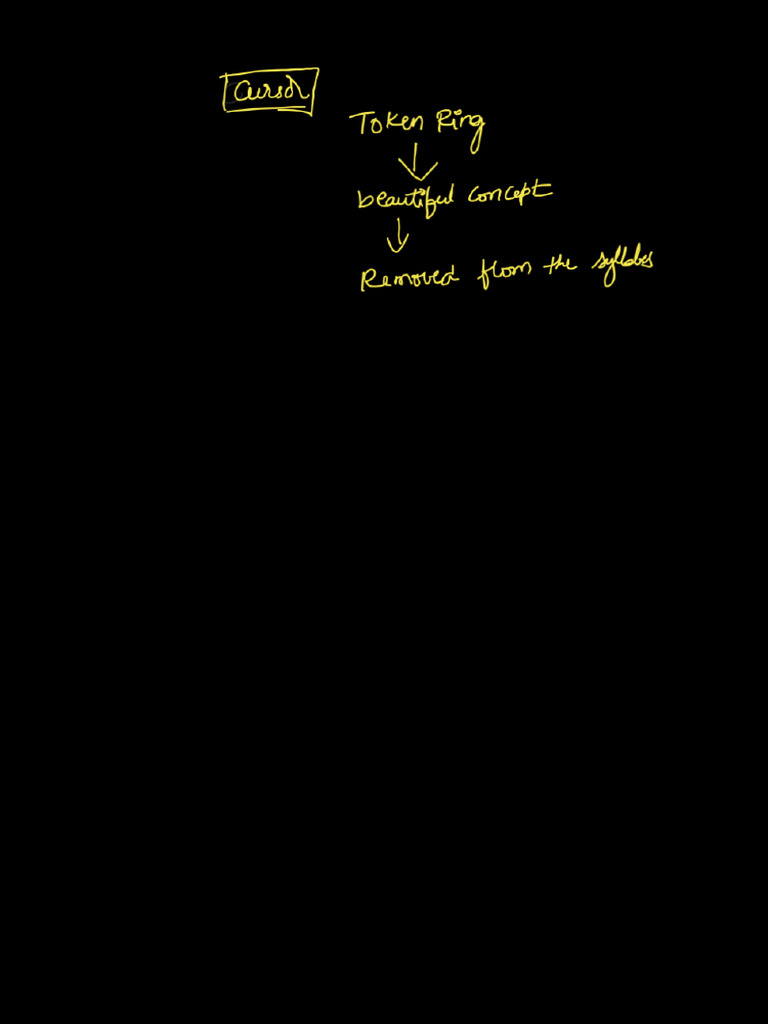 Cursor
Token Ring
beautiful concept
Removed from the syllabus